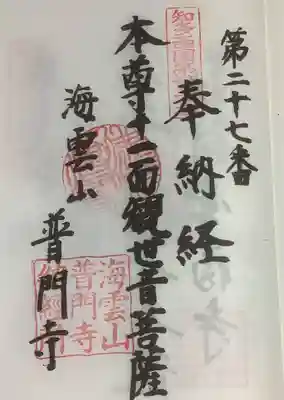 第二十七番
奉納経
本尊十一面観世音菩薩
海雲山
普門寺
海雲山
普門寺
納経